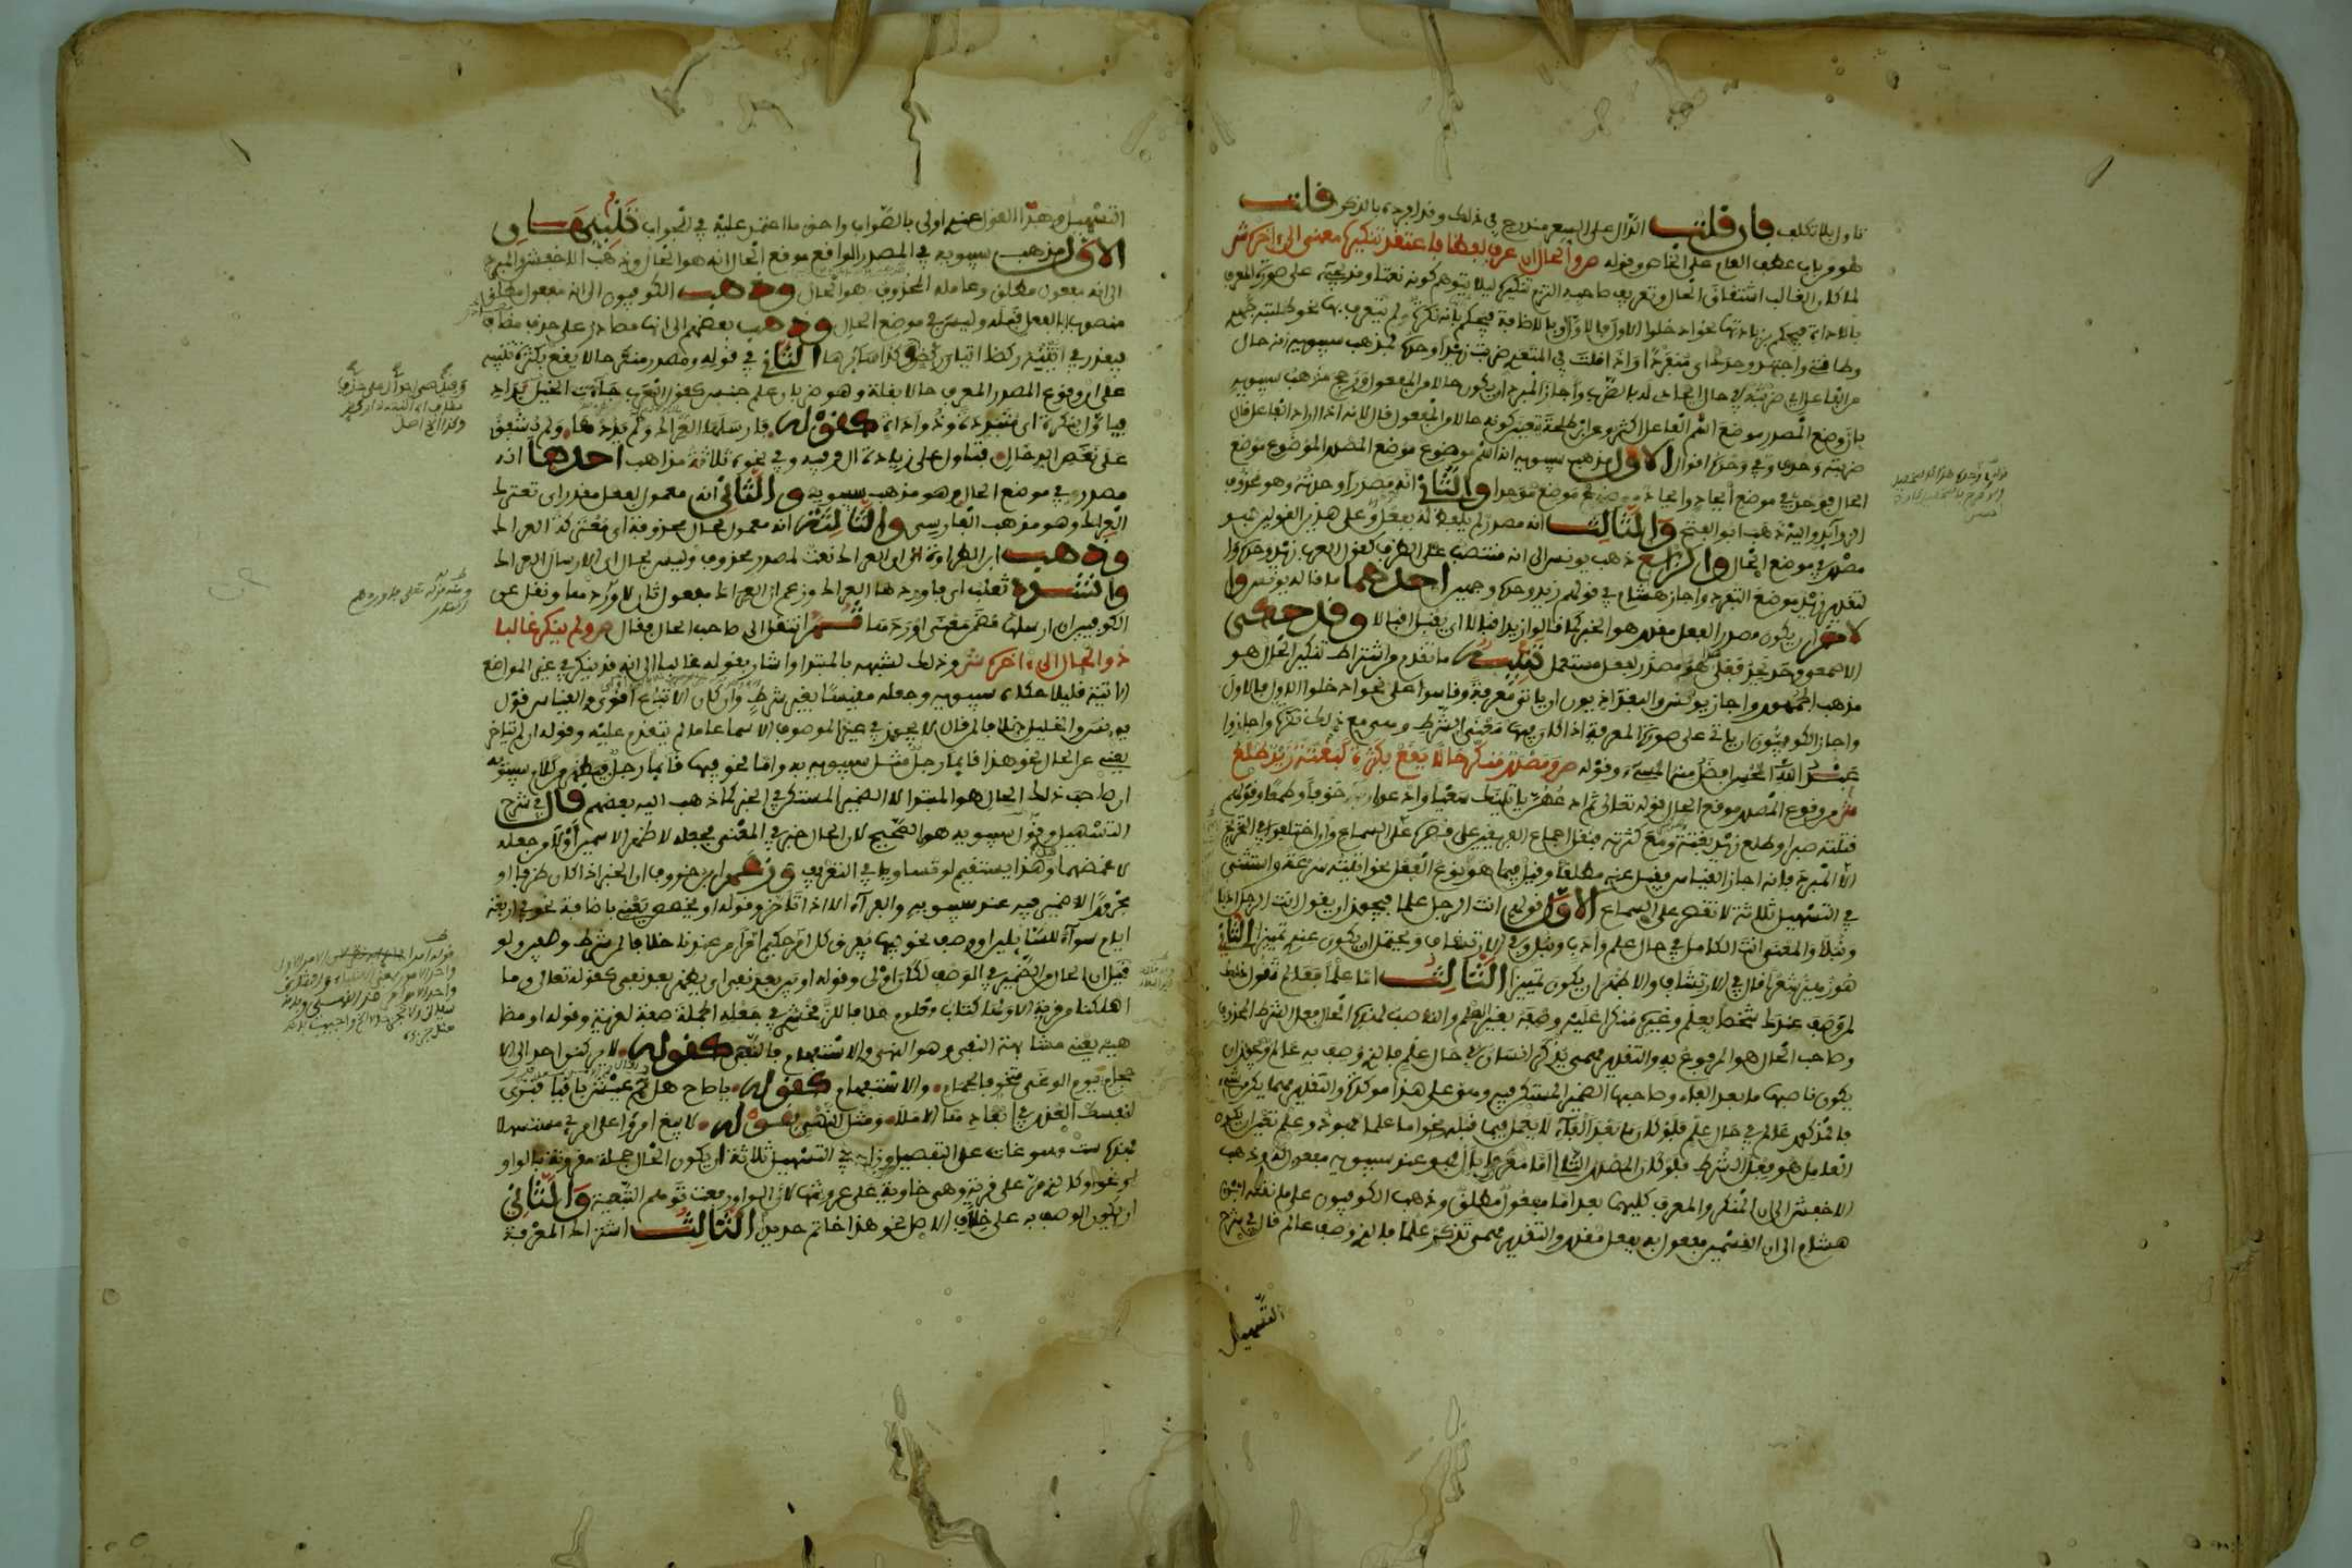 تاول بلا تكلف فان قلت الدال على السعر مندرج في ذلك وقد افرده بالذكر قلت
هو من باب عطف العام على الخاص وقوله ص والحال ان عرف لفظا فاعتقد تنكيره معنى الى اخره ش
لما كان الغالب اشتقاق الحال وتعريف صاحبه التزم تنكيره ليلا يتوهم كونه نعتا وقد يجيء على صورة المعرف
بالاداة فيحكم بزيادتها نحو ادخلوا الاول فالاول وبالاضافة فيحكم بانه نكرة لم يتعرف بها نحو طلبته جهدي
وطاقتي واجتهد وحدك اي منفردا واذا قلت في المتعدي ضربت زيدا وحده فمذهب سيبويه انه حال
من الفاعل اي ضربته في حال ايحادي له بالضرب واجاز المبرد ان يكون حالا من المفعول ورجح مذهب سيبويه
بان وضع المصدر موضع اسم الفاعل اكثر وعن ابن طلحة تعين كونه حالا من المفعول قال لانه اذا اراد الفاعل قال
ضربته وحدي وفي وحده اقوال الاول مذهب سيبويه انه اسم موضوع موضع المصدر الموضوع موضع
الحال فوحده في موضع ايحاد وايحاد في موضع موحدا والثاني انه مصدر اوحدته وهو محذوف
الزوائد واليه ذهب ابو الفتح والثالث انه مصدر لم يلفظ له بفعل وعلى هذين القولين فهو
مصدر في موضع الحال والرابع ذهب يونس الى انه منتصب على الظرف كقول العرب زيد وحده
لتقدير زيد موضع التفرد واجاز هشام في قولهم زيد وحده وجهين احدهما ما قاله يونس وا
لاخر ان يكون مصدر الفعل مقدر هو الخبر كما قالوا زيد اقبالا اي يقبل اقبالا وقد حكى
الاصمعي وحد يحد فعلى هذا هو مصدر لفعل مستعمل تنبيه ما تقدم من اشتراط تنكير الحال هو
مذهب الجمهور واجاز يونس والبغداديون ان ياتي معرفة وقاسوا على نحو ادخلوا الاول فالاول
واجاز الكوفيون ان ياتي على صورة المعرفة اذا كان فيها معنى الشرط وهي مع ذلك نكرة واجازوا
عبد الله المحسن افضل منه المسيء وقوله ص ومصدر منكر حالا يقع بكثرة كبغتة زيد طلع
ش من وقوع المصدر موقع الحال قوله تعالى ثم ادعهن ياتينك سعيا وادعوه خوفا وطمعا وقولهم
قتلته صبرا وطلع زيد بغتة ومع كثرته فنقل اجماع الفريقين على قصره على السماع وان اختلفوا في التخريج
الا المبرد فانه اجاز القياس فقيل عنه مطلقا وقيل فيما هو نوع الفعل نحو اتيته سرعة واستثنى
في التسهيل ثلاثة لا تقصر على السماع الاول قولهم انت الرجل علما فيجوز ان يقول انت الرجل ادبا
ونبلا والمعنى انت الكامل في حال علم وادب ونبل وفي الارتشاف ويحتمل ان يكون عنده تمييزا الثاني
هو زهير شعرا قال في الارتشاف والاظهر ان يكون تمييزا الثالث اما علما فعالم تقول ذلك
لمن وصف عندك شخصا بعلم وغيره منكرا عليه وصفه بغير العلم والناصب لهذه الحال فعل الشرط المحذوف
وصاحب الحال هو المرفوع به والتقدير مهما يذكر انسان في حال علم فالذي وصف به عالم ويجوز ان
يكون ناصبها ما بعد الفاء وصاحبها الضمير المستكن فيه وهو على هذا مؤكدة والتقدير مهما يكن من شيء
فالمذكور عالم في حال علم فلو كان ما بعد الفاء لا يعمل فيما قبله نحو اما علما فهو ذو علم تعين ان يكون
العامل هو فعل الشرط فلو كان المصدر التالي اما معرفا بال فهو عند سيبويه مفعول له وذهب
الاخفش الى ان المنكر والمعرف كليهما بعد اما مفعول مطلق وذهب الكوفيون على ما نقله ابن
هشام الى ان القسمين مفعول به بفعل مقدر والتقدير مهما تذكر علما فالذي وصف عالم قال في شرح
التسهيل
التسهيل وهذا القول عندي اولى بالصواب واحق ما اعتمد عليه في الجواب تنبيهان
الاول مذهب سيبويه في المصدر الواقع موقع الحال انه هو الحال وذهب الاخفش والمبرد
الى انه مفعول مطلق وعامله المحذوف هو الحال وذهب الكوفيون الى انه مفعول مطلق
منصوب بالفعل قبله وليس في موضع الحال وذهب بعضهم الى انها مصادر على حذف مضاف
فيقدر في اتيته ركضا اتيان ركض وكذا سائرها الثاني في قوله ومصدر منكر حالا يقع بكثرة تنبيه
على ان وقوع المصدر المعرف حالا بقلة وهو ضربان علم جنس كقول العرب جاءت الخيل بداد
فبداد نكرة اي متبددة وذو اداة كقوله فارسلها العراك ولم يذدها ولم يشفق
على نغص الدخال فتاول على زيادة ال وفيه وفي نحوه ثلاثة مذاهب احدها انه
مصدر في موضع الحال وهو مذهب سيبويه والثاني انه معمول لفعل مقدر اي تعترك
العراك وهو مذهب الفارسي والثالث انه معمول لحال محذوفة اي معتركة العراك
وذهب ابن الطراوة الى ان العراك نعت لمصدر محذوف وليس بحال اي الارسال العراك
وانشده ثعلب اي فاوردها العراك وزعم ان العراك مفعول ثان لاوردها ونقل عن
الكوفيين ان ارسلها مضمن معنى اوردها ثم انتقل الى صاحب الحال فقال ص ولم ينكر غالبا
ذو الحال الى اخره ش وذلك لشبهه بالمبتدا واشار بقوله غالبا الى انه قد ينكر في غير المواضع
الاتية قليلا حكاه سيبويه وجعله مقيسا بغير شرط وان كان الاتباع اقوى والقياس قول
يونس والخليل خلافا لمن قال لا يجوز في غير الموصوف الا سماعا ما لم يتقدم عليه وقوله ان لم يتاخر
يعني عن الحال نحو هذا قايما رجل مثل سيبويه به واما نحو فيها قايما رجل فظاهر كلام سيبويه
ان صاحب ذلك الحال هو المبتدا لا الضمير المستكن في الخبر كما ذهب اليه بعضهم قال في شرح
التسهيل وقول سيبويه هو الصحيح لان الحال خبر في المعنى فجعله لاظهر الاسمين اولى من جعله
لاغمضهما وهذا يستقيم لو تساويا في التعريف وزعم ابن خروف ان الخبر اذا كان ظرفا او
مجرورا لا ضمير فيه عند سيبويه والفراء الا اذا تاخر وقوله او يخصص يعني باضافة نحو في اربعة
ايام سواء للسائلين او وصف نحو فيها يفرق كل امر حكيم امرا من عندنا خلافا لمن شرط وصفين ولو
قيل ان الحال من الضمير في الوصف لكان اولى وقوله او يبن بعد نفي اي يظهر بعد نفي كقوله تعالى وما
اهلكنا من قرية الا ولها كتاب معلوم خلافا للزمخشري في جعله الجملة صفة لقرية وقوله او مضا
هيه يعني مشابهة النفي وهو النهي والاستفهام فالنهي كقوله لا يركنن احد الى الا
حجام يوم الوغى متخوفا لحمام والاستفهام كقوله يا صاح هل حم عيش باقيا فترى
لنفسك العذر في ابعادها الاملا ومثل النهي بقوله لا يبغ امرؤ على امرئ مستسهلا
فهذه ست مسوغات على التفصيل وزاد في التسهيل ثلاثة ان يكون الحال جملة مقرونة بالواو
نحو او كالذي مر على قرية وهي خاوية على عروشها لان الواو رفعت توهم النعتية والثاني
ان يكون الوصف به على خلاف الاصل نحو هذا خاتم حديدا الثالث اشتراك المعرفة